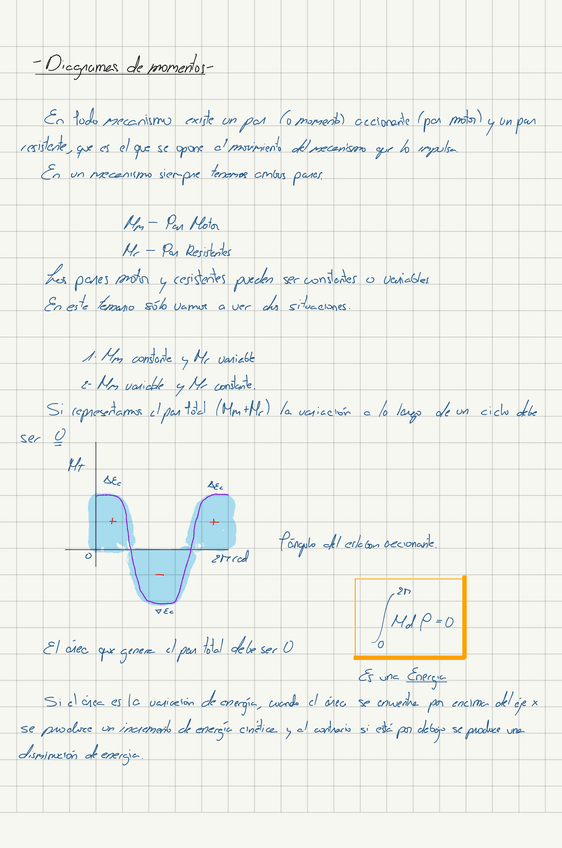 -Diagrames de momentos-
En todo mecanismo existe un par (o momento) accionante (par motor) y un par
resistente, que es el que se opone al movimiento del mecanismo que lo impulsa.
En un mecanismo siempre tenemos ambos pares.
Mm - Par Motor
Mr - Par Resistentes
Los pares motor y resistentes pueden ser constantes o variables
En este temario sólo vamos a ver dos situaciones.
1- Mm constante y Mr variable
2- Mm variable y Mr constante.
Si representamos el par total (Mm+Mr) la variación a lo largo de un ciclo debe
ser 0
MT
ΔEc
ΔEc
+
+
-
0
2π rad
∇Ec
φ ángulo del eslabon accionante.
∫ 2π 0 M d φ = 0
El área que genera el par total debe ser 0
Es una Energía
Si el área es la variación de energía, cuando el área se encuentra por encima del eje x
se produce un incremento de energía cinética y al contrario si está por debajo se produce una
disminución de energía.